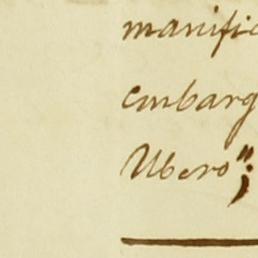 manific
embarg
Ubero";